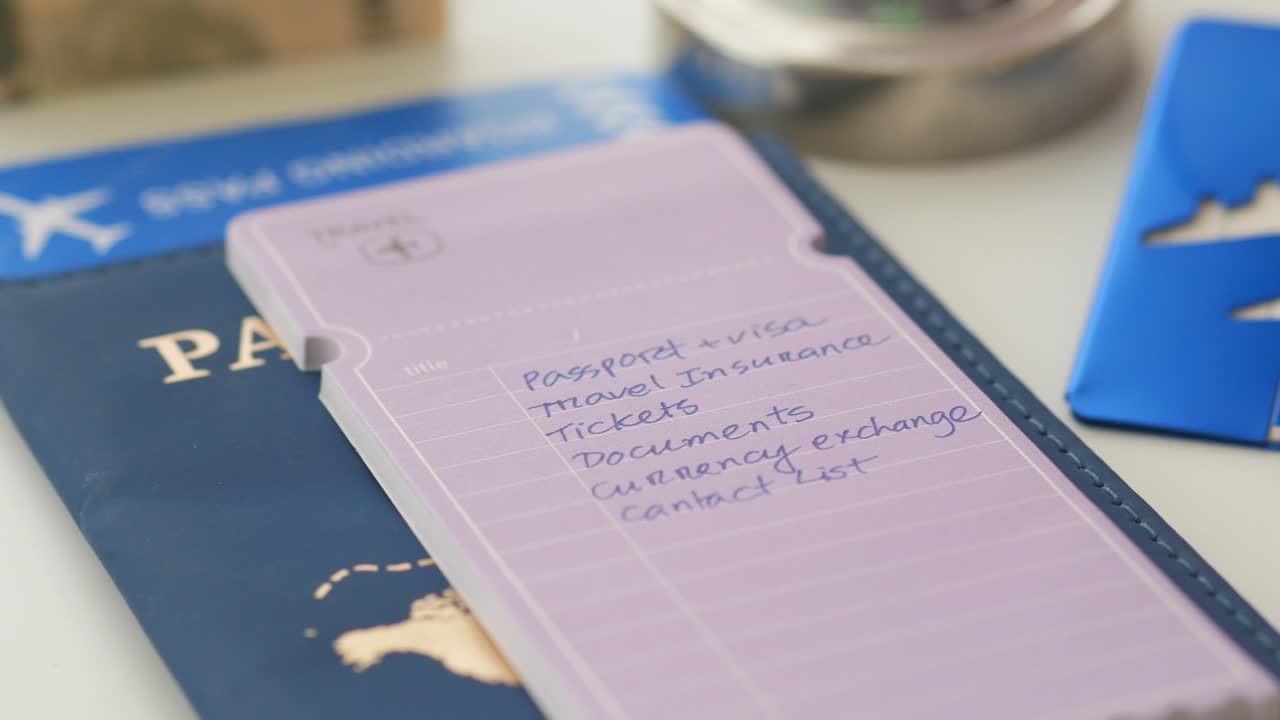 BOARDING PASS
PA
TRAVEL
title
Passport + visa
Travel Insurance
Tickets
Documents
Currency exchange
Cantact List